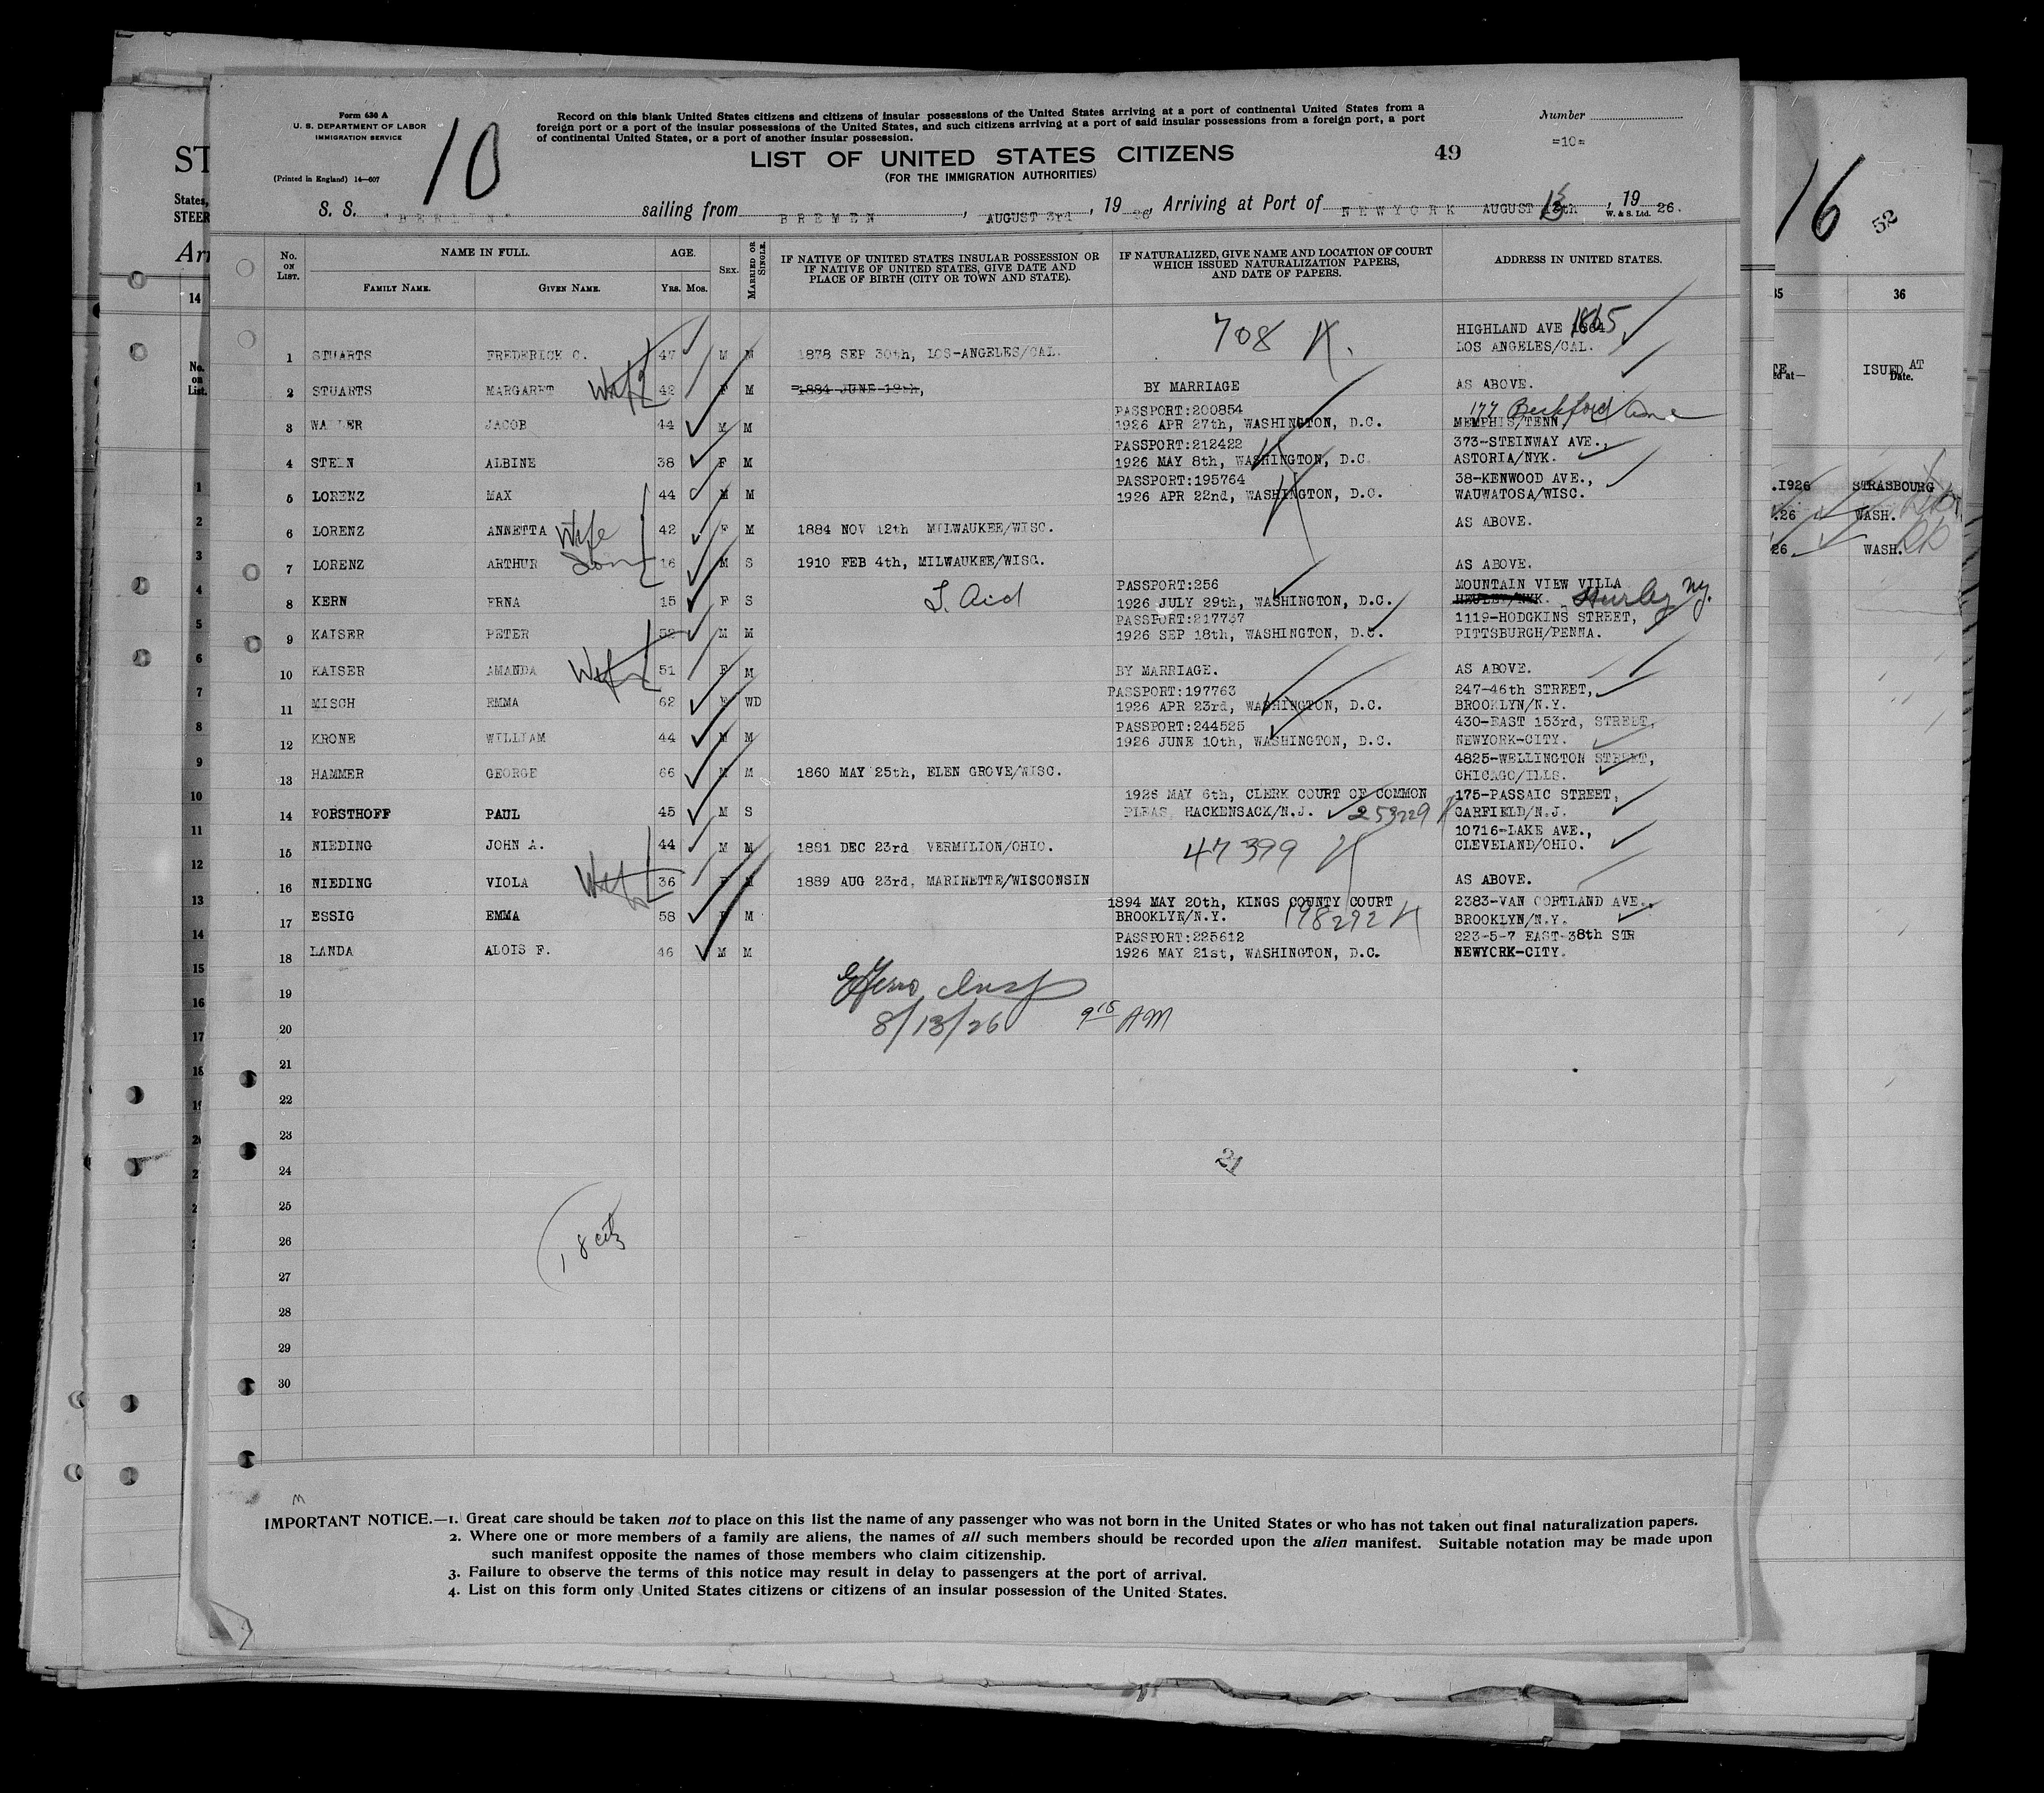 Form 630 A
U. S. DEPARTMENT OF LABOR
IMMIGRATION SERVICE
(Printed in England) 14—607
10
Record on this blank United States citizens and citizens of insular possessions of the United States arriving at a port of continental United States from a
foreign port or a port of the insular possessions of the United States, and such citizens arriving at a port of said insular possessions from a foreign port, a port
of continental United States, or a port of another insular possession.
Number
=10=
LIST OF UNITED STATES CITIZENS
49
(FOR THE IMMIGRATION AUTHORITIES)
S. S. "BERLIN" sailing from BREMEN, AUGUST 3rd, 1926, Arriving at Port of NEWYORK AUGUST 13th, 1926.
W. & S. Ltd.
No. ON LIST. NAME IN FULL. FAMILY NAME. GIVEN NAME. AGE. YRS. MOS. SEX. MARRIED OR SINGLE. IF NATIVE OF UNITED STATES INSULAR POSSESSION OR IF NATIVE OF UNITED STATES, GIVE DATE AND PLACE OF BIRTH (CITY OR TOWN AND STATE). IF NATURALIZED, GIVE NAME AND LOCATION OF COURT WHICH ISSUED NATURALIZATION PAPERS, AND DATE OF PAPERS. ADDRESS IN UNITED STATES.
708 HIGHLAND AVE 1865
1 STUARTS FREDERICK C. 47 M M 1878 SEP 30th, LOS-ANGELES/CAL. LOS ANGELES/CAL.
2 STUARTS MARGARET Wife 42 F M 1884 JUNE 18th, BY MARRIAGE AS ABOVE.
PASSPORT:200854 177 Beckford Ave
3 JACOB 44 M M 1926 APR 27th, WASHINGTON, D.C. MEMPHIS/TENN,
PASSPORT:212422 373-STEINWAY AVE.,
4 STEIN ALBINE 38 F M 1926 MAY 8th, WASHINGTON, D.C. ASTORIA/NYK.
PASSPORT:195764 38-KENWOOD AVE.,
5 LORENZ MAX 44 M M 1926 APR 22nd, WASHINGTON, D.C. WAUWATOSA/WISC.
6 LORENZ ANNETTA Wife 42 F M 1884 NOV 12th MILWAUKEE/WISC. AS ABOVE.
7 LORENZ ARTHUR Son 16 M S 1910 FEB 4th, MILWAUKEE/WISC. AS ABOVE.
PASSPORT:256 MOUNTAIN VIEW VILLA
8 KERN ERNA 15 F S T. Aid 1926 JULY 29th, WASHINGTON, D.C. Hurley NY.
PASSPORT:217737 1119-HODGKINS STREET,
9 KAISER PETER 52 M M 1926 SEP 18th, WASHINGTON, D.C. PITTSBURGH/PENNA.
10 KAISER AMANDA Wife 51 F M BY MARRIAGE. AS ABOVE.
PASSPORT:197763 247-46th STREET,
11 MISCH EMMA 62 F WD 1926 APR 23rd, WASHINGTON, D.C. BROOKLYN/N.Y.
PASSPORT:244525 430-EAST 153rd, STREET,
12 KRONE WILLIAM 44 M M 1926 JUNE 10th, WASHINGTON, D.C. NEWYORK-CITY.
4825-WELLINGTON STREET,
13 HAMMER GEORGE 66 M M 1860 MAY 25th, ELEN GROVE/WISC. CHICAGO/ILLS.
1926 MAY 6th, CLERK COURT OF COMMON 175-PASSAIC STREET,
14 FORSTHOFF PAUL 45 M S PLEAS, HACKENSACK/N.J. 253229 GARFIELD/N.J.
10716-LAKE AVE.,
15 NIEDING JOHN A. 44 M M 1881 DEC 23rd VERMILION/OHIO. 47399 CLEVELAND/OHIO.
16 NIEDING VIOLA Wife 36 F M 1889 AUG 23rd, MARINETTE/WISCONSIN AS ABOVE.
1894 MAY 20th, KINGS COUNTY COURT 2383-VAN CORTLAND AVE.,
17 ESSIG EMMA 58 F M BROOKLYN/N.Y. 198292 BROOKLYN/N.Y.
PASSPORT:225612 223-5-7 EAST-38th STR
18 LANDA ALOIS F. 46 M M 1926 MAY 21st, WASHINGTON, D.C. NEWYORK-CITY.
19
8/13/26 9 15 AM
20
21
22
23
24 21
25
26 18 citz
27
28
29
30
IMPORTANT NOTICE.—1. Great care should be taken not to place on this list the name of any passenger who was not born in the United States or who has not taken out final naturalization papers.
2. Where one or more members of a family are aliens, the names of all such members should be recorded upon the alien manifest. Suitable notation may be made upon
such manifest opposite the names of those members who claim citizenship.
3. Failure to observe the terms of this notice may result in delay to passengers at the port of arrival.
4. List on this form only United States citizens or citizens of an insular possession of the United States.
ST
States,
STEER
Arr
14
No. on List.
1
2
3
4
5
6
7
8
9
10
11
12
13
14
15
16
17
18
16
52
35 36
ISUED AT
Date.
.1926 STRASBOURG
.26 WASH.
26. WASH.